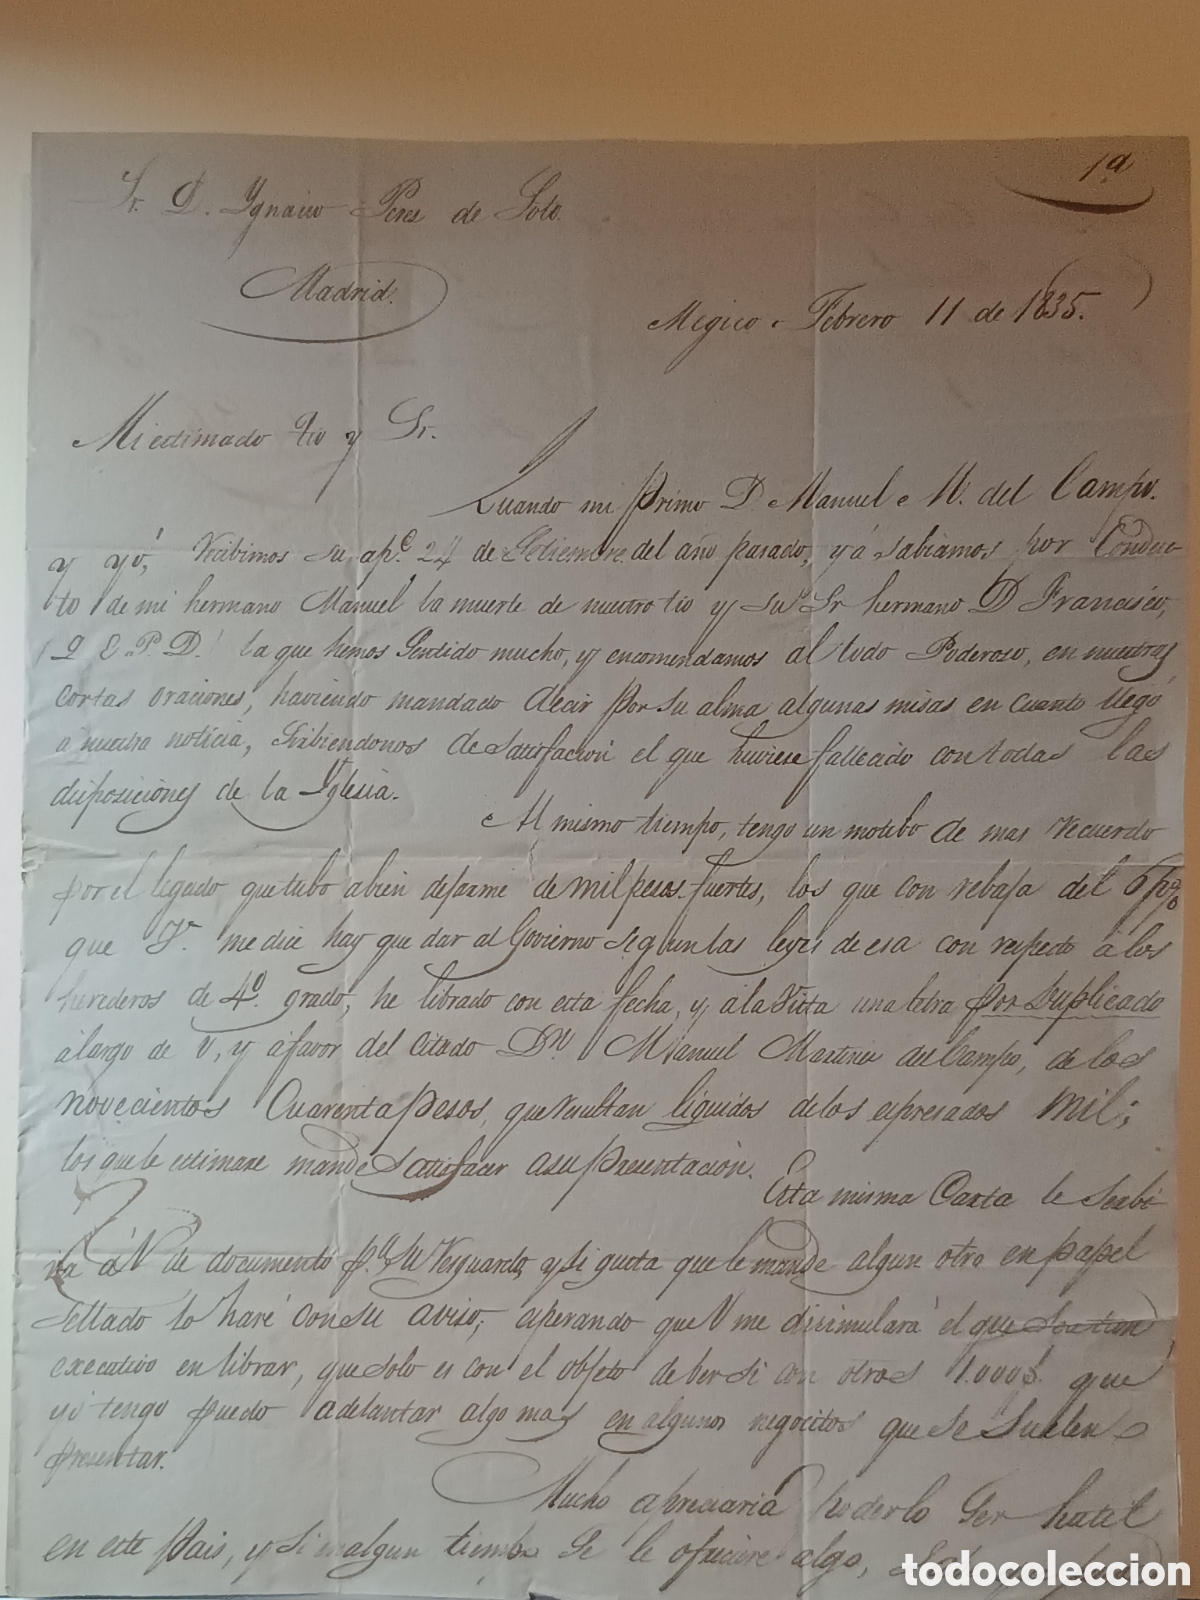 1ª
Sr. D. Ygnacio Perez de Soto.
Madrid.
Megico Febrero 11 de 1835.
Mi estimado tio y Sr.
Cuando mi Primo D. Manuel M. del Campo.
y yó, recibimos su ap.e 24 de Setiembre del año pasado, yá sabiamos por Conduc-
to de mi hermano Manuel la muerte de nuestro tio y su Sr hermano D Francisco,
(Q E.P.D.) la que hemos Sentido mucho, y encomendamos al todo Poderoso, en nuestras
cortas oraciones, haviendo mandado decir por su alma algunas misas en cuanto llegó
á nuestra noticia, Sirbiendonos de satisfacion el que huviese fallecido con todas las
disposiciones de la Yglesia.
Al mismo tiempo, tengo un motibo de mas recuerdo
por el legado que tubo abien desarme de mil pesos fuertes, los que con rebaja del 6 p%
que V. me dice hay que dar al Govierno segun las leyes de esa con respecto á los
herederos de 4º. grado, he librado con esta fecha, y á la Vista una letra por Duplicado
álargo de V, y áfavor del citado Dn Manuel Martinez del Campo, de los
novecientos Cuarenta pesos, que resultan liquidos de los espresados mil;
los que le estimare mande Satisfacer asu presentacion.
Esta misma Carta le Serbi-
ra á V de documento p.a su resguardo, y si gusta que le mande algun otro en papel
Sellado lo haré con su aviso; esperando que V me disimulará el que sea tan
executivo en librar, que solo es con el objeto de ber si con otros 1.000$. que
yo tengo puedo adelantar algo mas en algunos negocitos que se suelen
presentar.
Mucho apreciaria poderlo Ser hutil
en este Pais, y si en algun tiempo Se le ofreciere algo,
todocoleccion